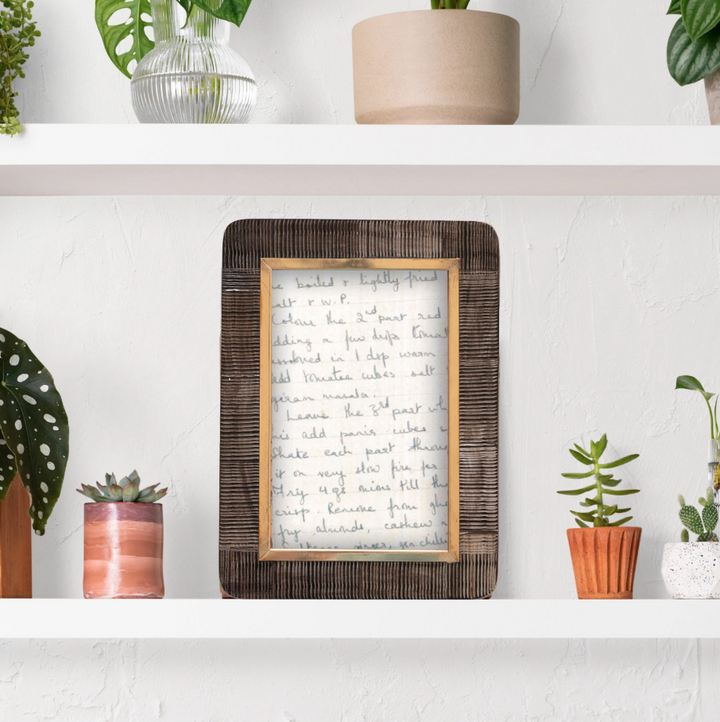 e boiled & lightly fried
alt & W.P.
Colour the 2nd part red
dding a few drops tomat
in 1 dsp warm
add tomatoe cubes salt
garam masala.
Leave the 3rd part wh
his add panir cubes
Shake each part throu
it on very slow fire for
Fry 4 gr onions till th
crisp. Remove from ghe
fry almonds, cashew
ginger, gr. chillie